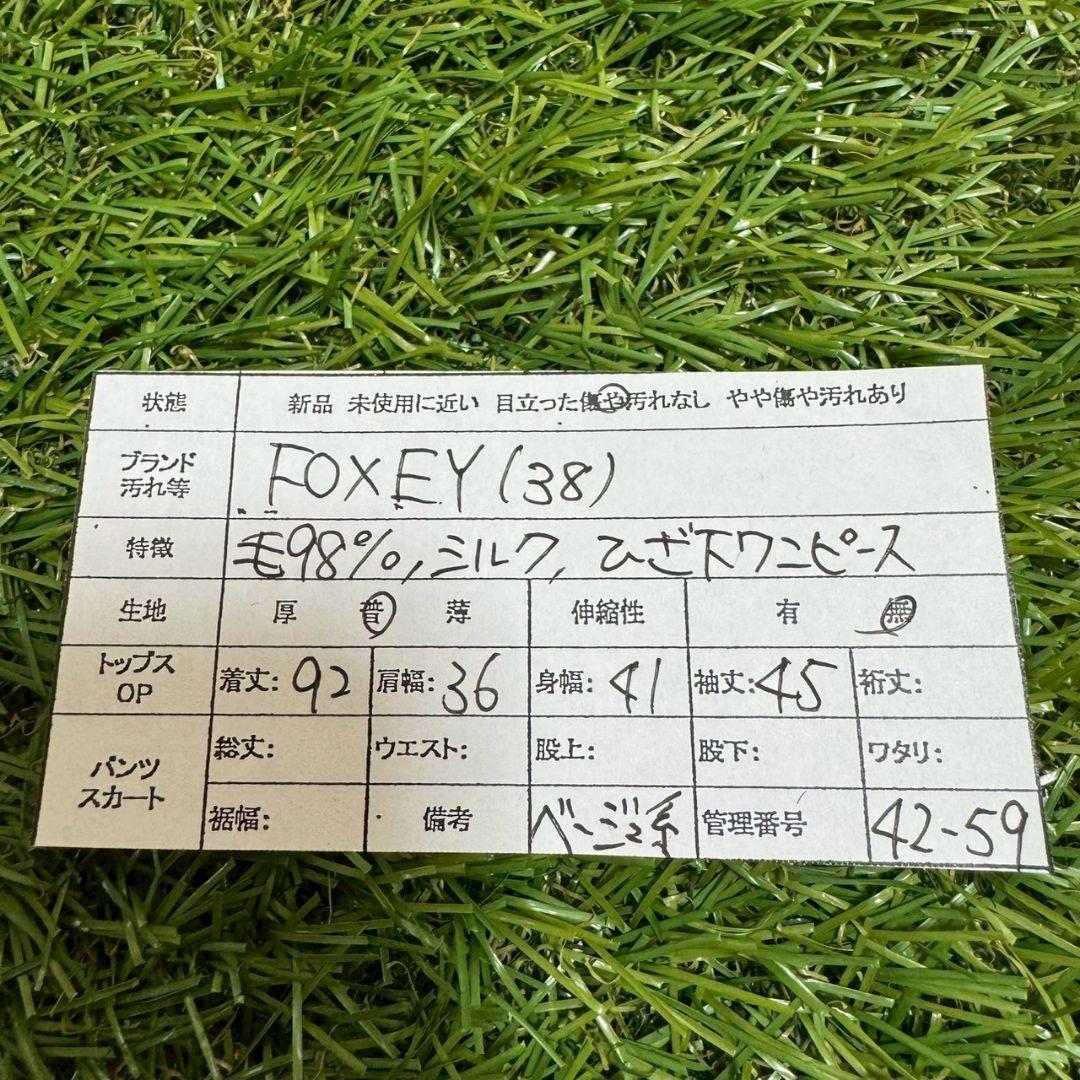 状態 新品 未使用に近い 目立った傷や汚れなし やや傷や汚れあり
ブランド
汚れ等 FOXEY(38)
特徴 毛98%,ミルク,ひざ下ワンピース
生地 厚 普 薄 伸縮性 有 無
トップス
OP 着丈:92 肩幅:36 身幅:41 袖丈:45 裄丈:
パンツ
スカート 総丈: ウエスト: 股上: 股下: ワタリ:
裾幅: 備考 ベージュ系 管理番号 42-59